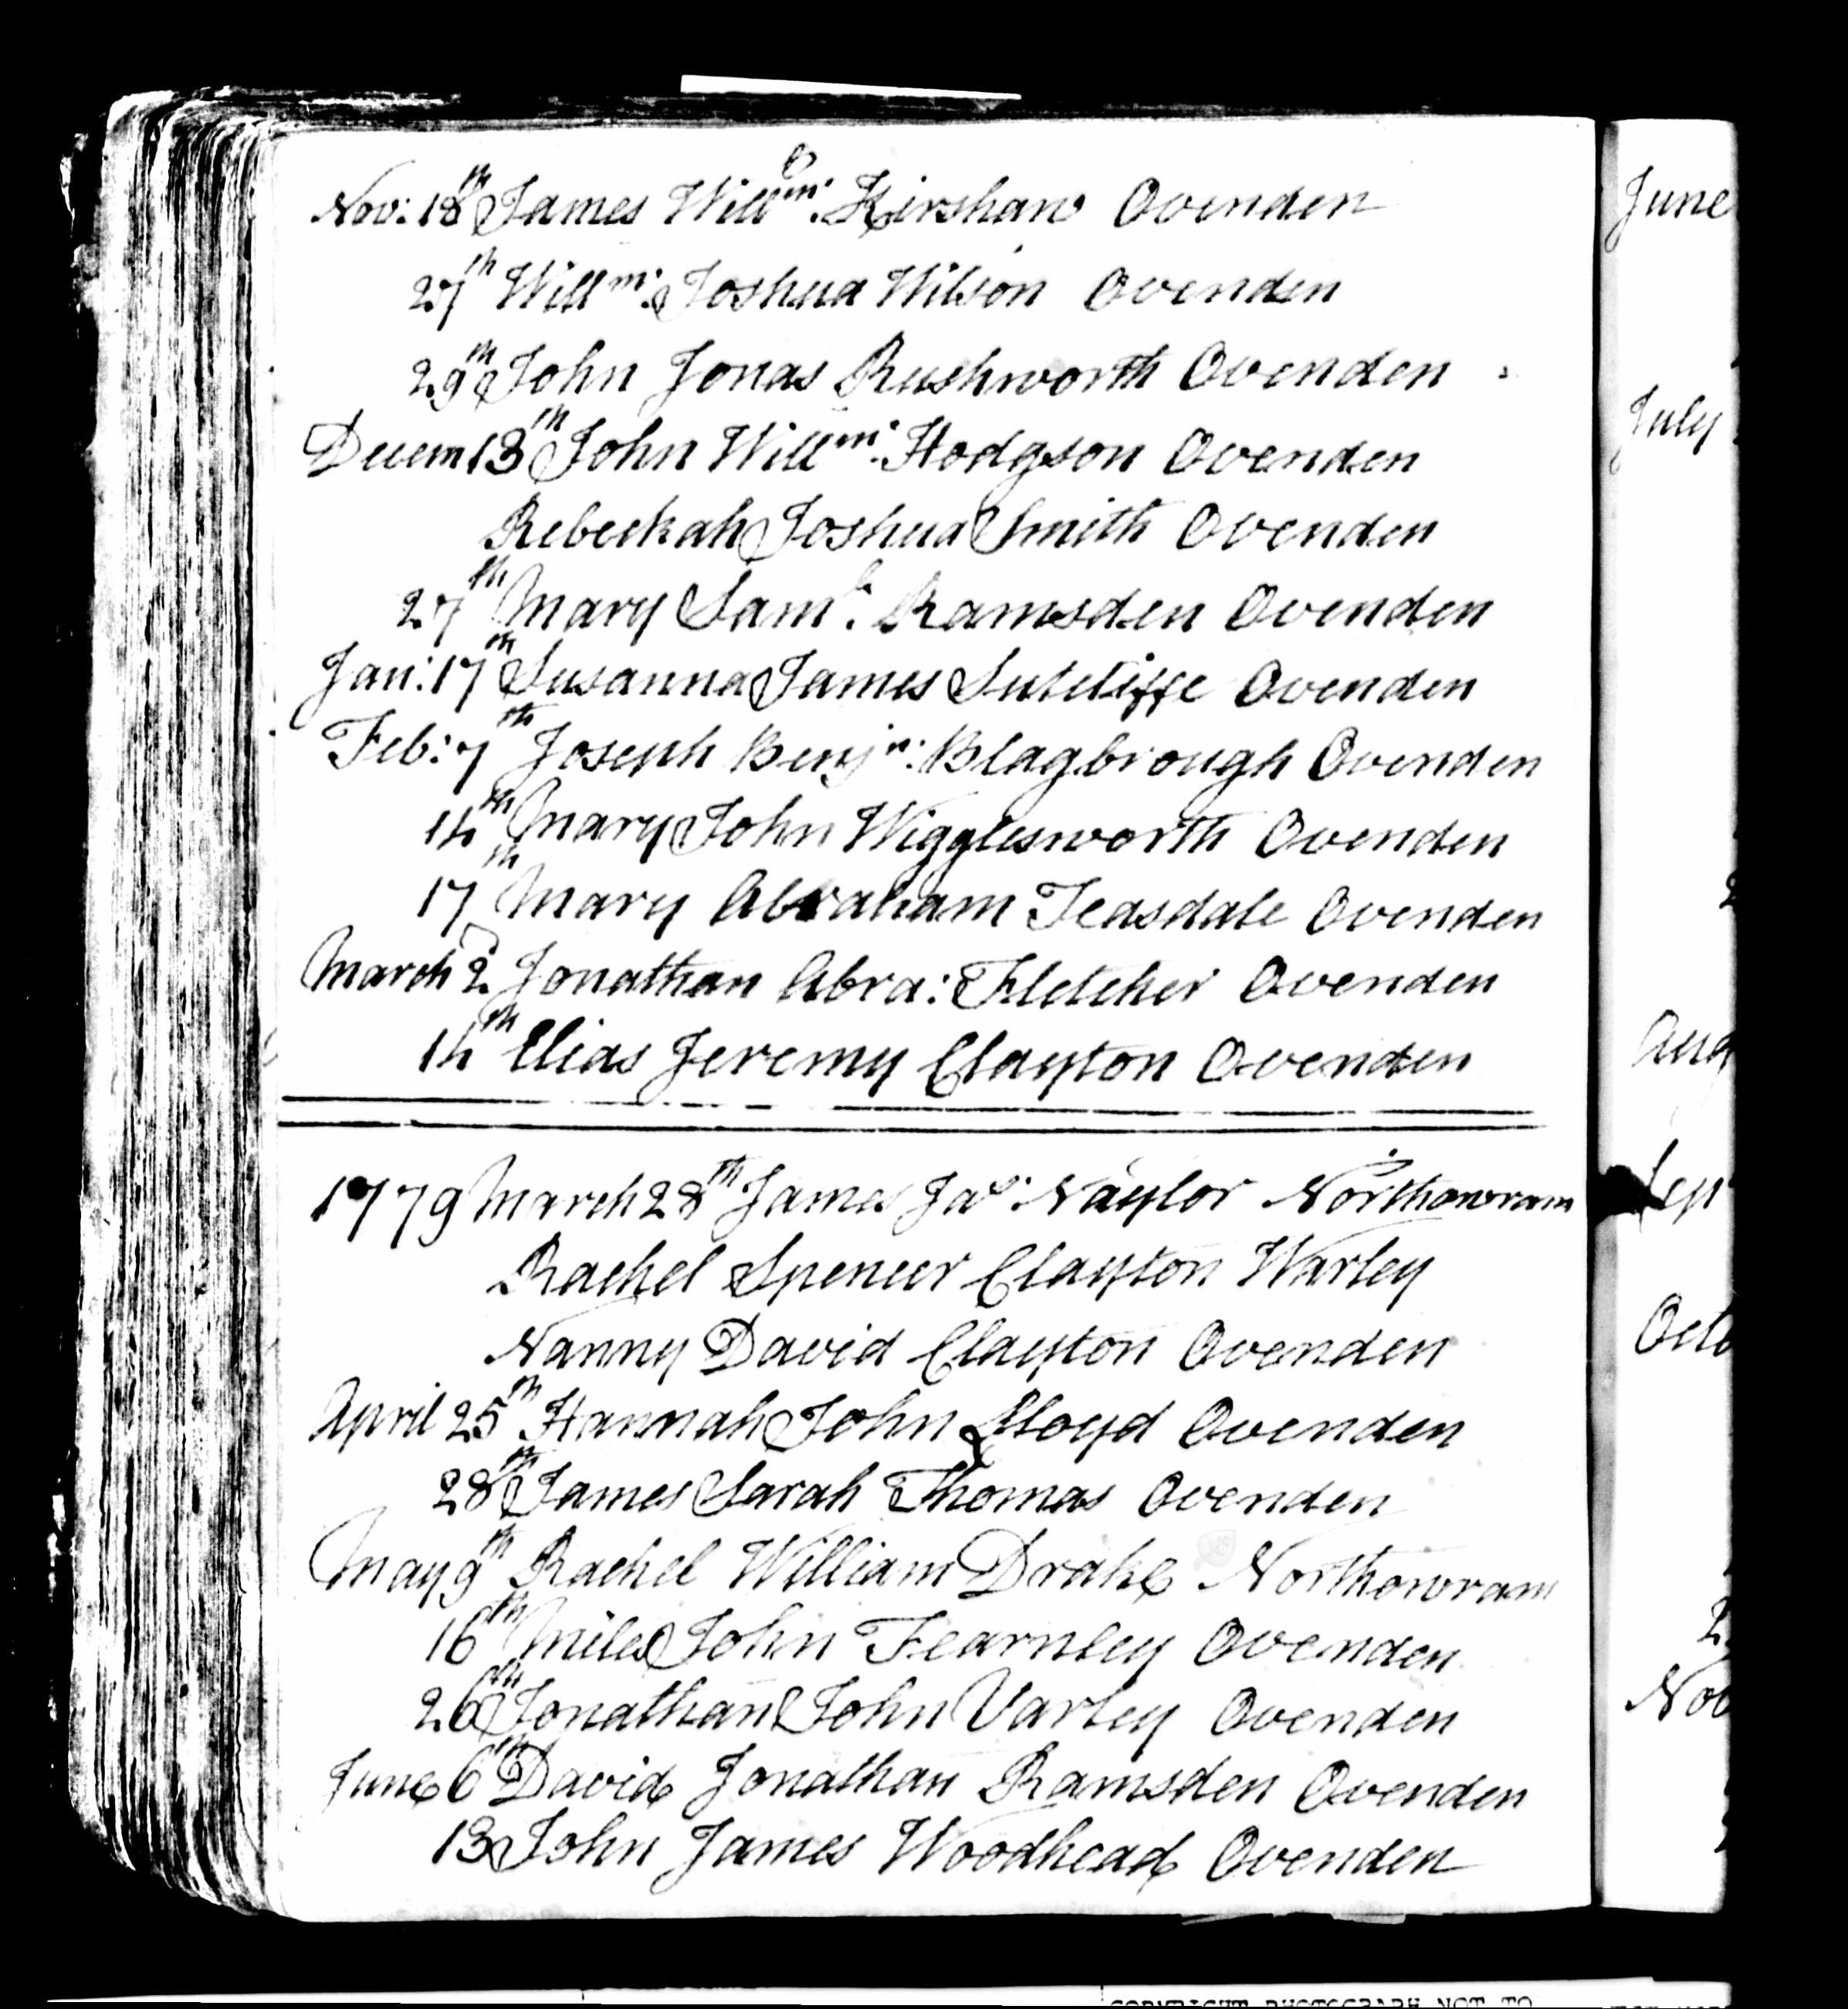 Nov: 18th James Willm: Kirshaw Ovenden
27th Willm: Joshua Wilson Ovenden
29th John Jonas Rushworth Ovenden
Decem 13th John Willm: Hodgson Ovenden
Rebeckah Joshua Smith Ovenden
27th Mary Saml: Ramsden Ovenden
Jan: 17th Susanna James Sutcliffe Ovenden
Feb: 7th Joseph Benjn: Blagbrough Ovenden
14th Mary John Wigglesworth Ovenden
17th Mary Abraham Teasdale Ovenden
March 2 Jonathan Abra: Fletcher Ovenden
14th Elias Jeremy Clayton Ovenden
1779 March 28th James Jas: Naylor Northowram
Rachel Spencer Clayton Warley
Nanny David Clayton Ovenden
April 25th Hannah John Lloyd Ovenden
28th James Sarah Thomas Ovenden
May 9th Rachel William Drake Northowram
16th Miles John Fearnley Ovenden
26th Jonathan John Varley Ovenden
June 6th David Jonathan Ramsden Ovenden
13 John James Woodhead Ovenden
June
July
Aug
Sep
Octo
Nov
COPYRIGHT PHOTOGRAPH NOT TO